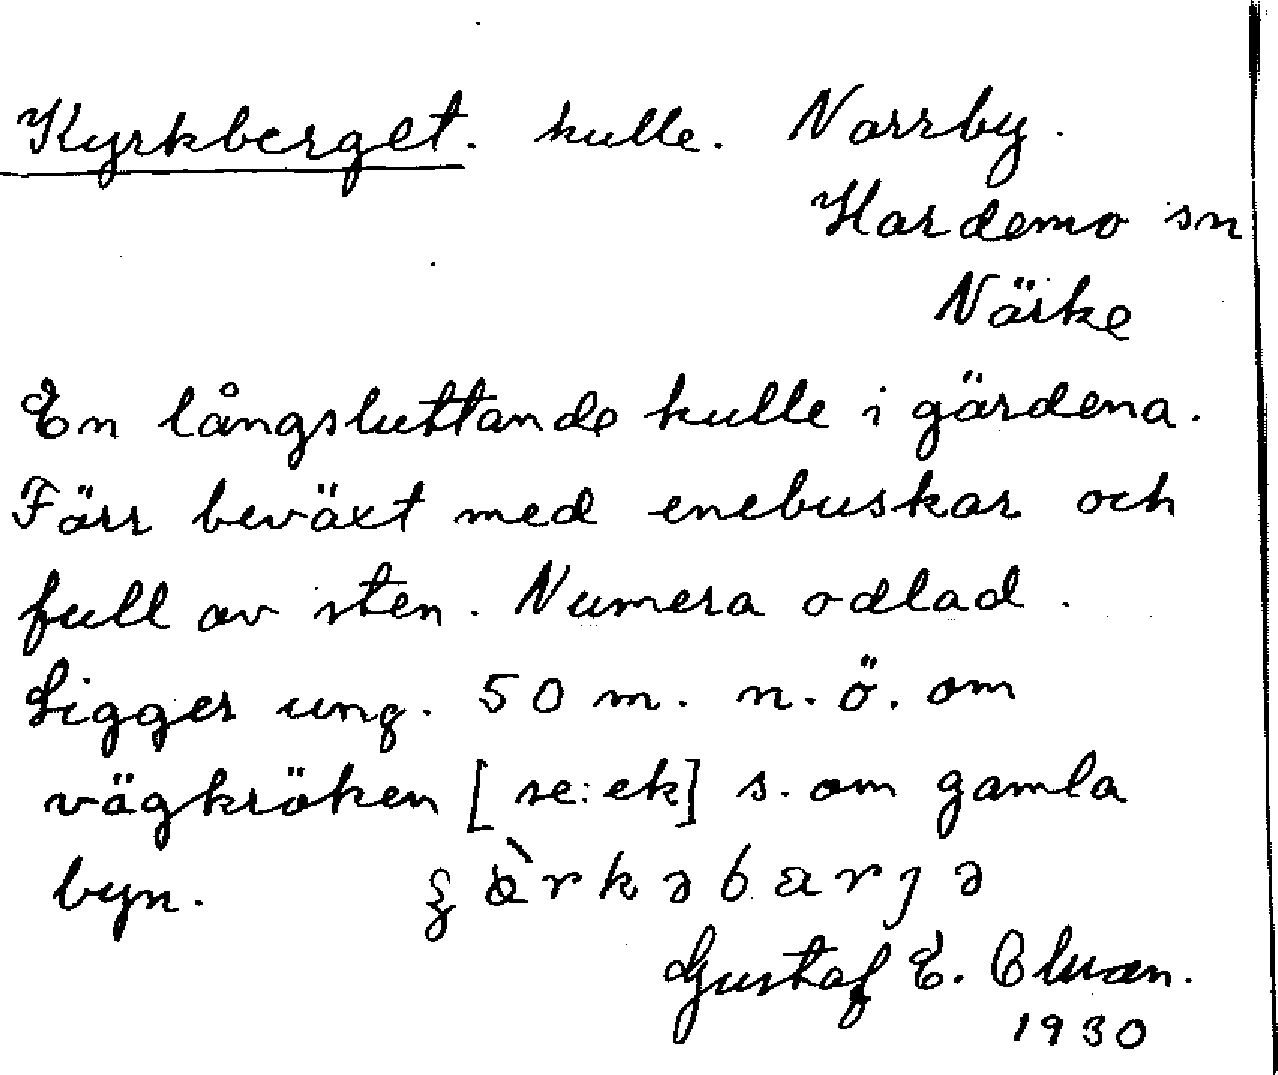 Kyrkberget. kulle. Norrby.
Hardemo sn
Närke
En långsluttande kulle i gärdena.
Förr beväxt med enebuskar och
full av sten. Numera odlad.
Ligger ung. 50 m. n.ö. om
vägkröken [se: ek] s. om gamla
byn.
Gustaf E.
1930